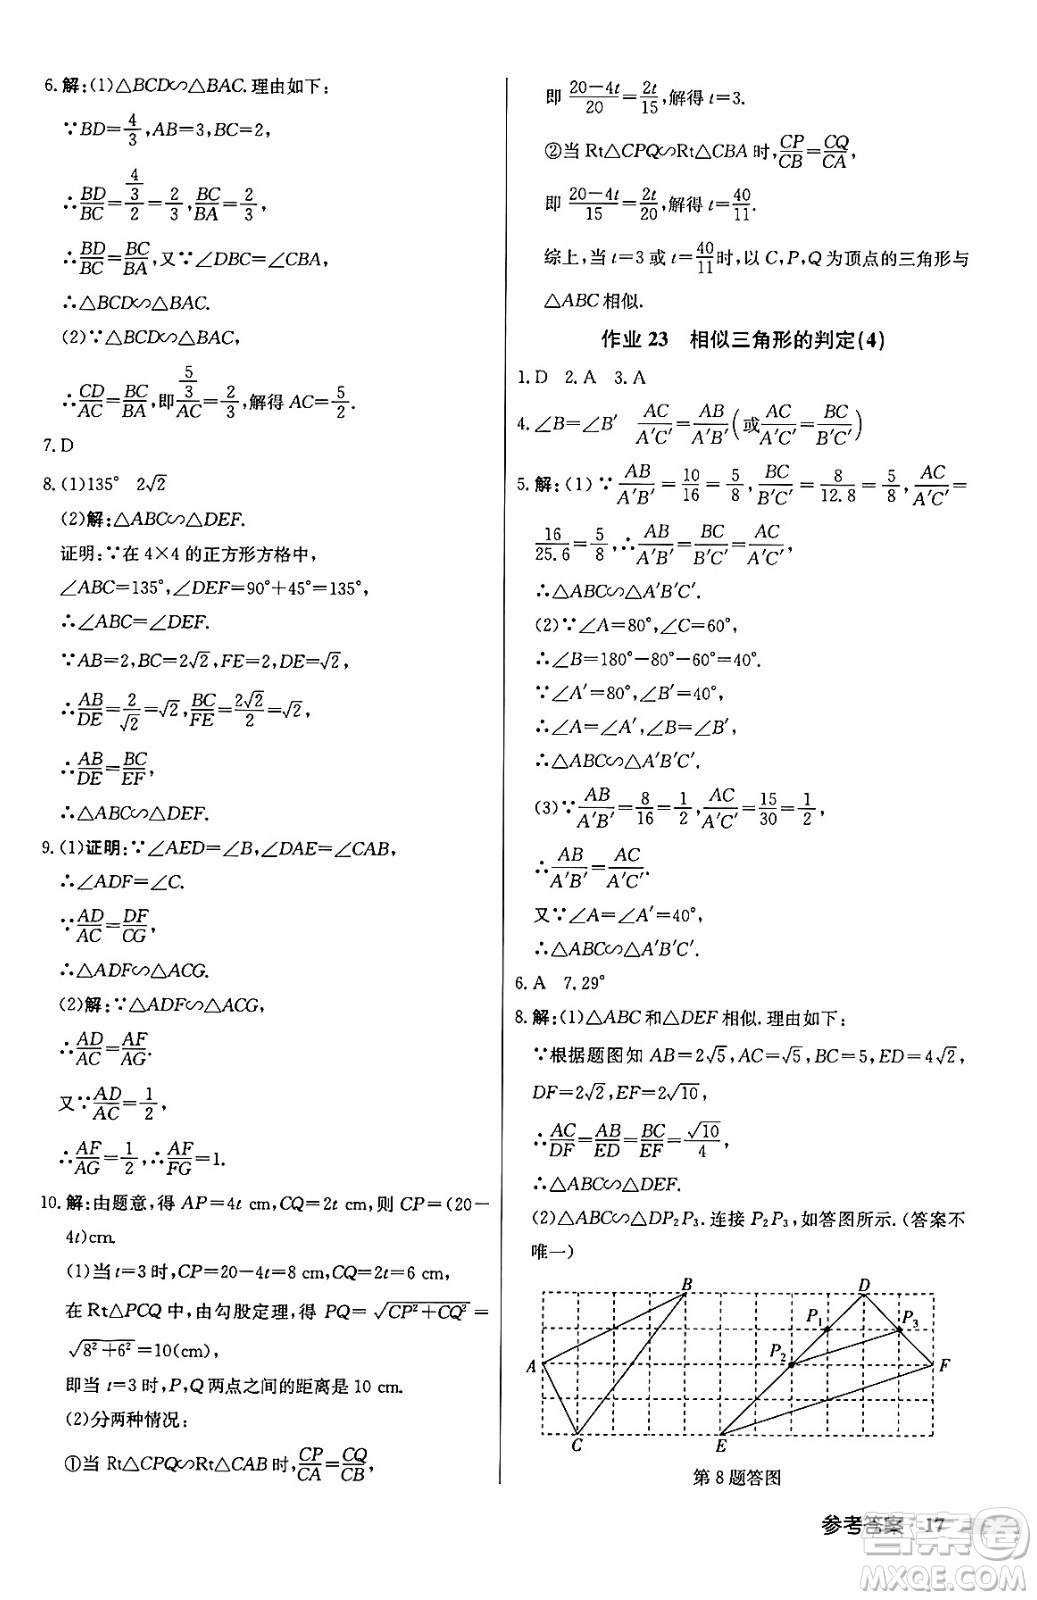 6.解:(1)△BCD∽△BAC.理由如下:
∵BD=4/3,AB=3,BC=2,
∴BD/BC=(4/3)/2=2/3,BC/BA=2/3,
∴BD/BC=BC/BA,又∵∠DBC=∠CBA,
∴△BCD∽△BAC.
(2)∵△BCD∽△BAC,
∴CD/AC=BC/BA,即(5/3)/AC=2/3,解得AC=5/2.
7.D
8.(1)135° 2√2
(2)解:△ABC∽△DEF.
证明:∵在4×4的正方形方格中,
∠ABC=135°,∠DEF=90°+45°=135°,
∴∠ABC=∠DEF.
∵AB=2,BC=2√2,FE=2,DE=√2,
∴AB/DE=2/√2=√2,BC/FE=2√2/2=√2,
∴AB/DE=BC/EF,
∴△ABC∽△DEF.
9.(1)证明:∵∠AED=∠B,∠DAE=∠CAB,
∴∠ADF=∠C.
∵AD/AC=DF/CG,
∴△ADF∽△ACG.
(2)解:∵△ADF∽△ACG,
∴AD/AC=AF/AG.
又∵AD/AC=1/2,
∴AF/AG=1/2,∴AF/FG=1.
10.解:由题意,得AP=4t cm,CQ=2t cm,则CP=(20-
4t)cm.
(1)当t=3时,CP=20-4t=8 cm,CQ=2t=6 cm,
在Rt△PCQ中,由勾股定理,得PQ=√(CP²+CQ²)=
√(8²+6²)=10(cm),
即当t=3时,P,Q两点之间的距离是10 cm.
(2)分两种情况:
①当Rt△CPQ∽Rt△CAB时,CP/CA=CQ/CB,
即(20-4t)/20=2t/15,解得t=3.
②当Rt△CPQ∽Rt△CBA时,CP/CB=CQ/CA,
即(20-4t)/15=2t/20,解得t=40/11.
综上,当t=3或t=40/11时,以C,P,Q为顶点的三角形与
△ABC相似.
作业23 相似三角形的判定(4)
1.D 2.A 3.A
4.∠B=∠B′ AC/A′C′=AB/A′B′(或AC/A′C′=BC/B′C′)
5.解:(1)∵AB/A′B′=10/16=5/8,BC/B′C′=8/12.8=5/8,AC/A′C′=
16/25.6=5/8,∴AB/A′B′=BC/B′C′=AC/A′C′,
∴△ABC∽△A′B′C′.
(2)∵∠A=80°,∠C=60°,
∴∠B=180°-80°-60°=40°.
∵∠A′=80°,∠B′=40°,
∴∠A=∠A′,∠B=∠B′,
∴△ABC∽△A′B′C′.
(3)∵AB/A′B′=8/16=1/2,AC/A′C′=15/30=1/2,
∴AB/A′B′=AC/A′C′.
又∵∠A=∠A′=40°,
∴△ABC∽△A′B′C′.
6.A 7.29°
8.解:(1)△ABC和△DEF相似.理由如下:
∵根据题图知AB=2√5,AC=√5,BC=5,ED=4√2,
DF=2√2,EF=2√10,
∴AC/DF=AB/ED=BC/EF=√10/4,
∴△ABC∽△DEF.
(2)△ABC∽△DP₂P₃.连接P₂P₃,如答图所示.(答案不
唯一)
B D
P₁ P₃
A P₂ F
C E
第8题答图
参考答案 17
答案卷
MXQE.COM